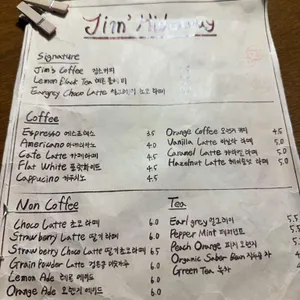 Jim's Hideaway
Signature
Jim's Coffee 짐스커피
Lemon Black Tea
Earlgrey Choco Latte 얼그레이 초코 라떼
Coffee
Espresso 에스프레소 3.5
Americano 아메리카노 4.0
Cafe Latte 카페라떼 4.5
Flat White 플랫화이트 4.5
Cappucino 카푸치노 4.5
Orange Coffee 오렌지 커피 4.5
Vanilla Latte 바닐라 라떼 5.0
Caramel Latte 카라멜 라떼 5.0
Hazelnut Latte 헤이즐넛 라떼 5.0
Non Coffee
Choco Latte 초코 라떼 6.0
Strawberry Latte 딸기 라떼 6.0
Strawberry Choco Latte 딸기초코라떼 6.5
Grain Powder Latte 6.0
Lemon Ade 레몬 에이드 6.0
Orange Ade 오렌지 에이드 6.0
Tea
Earl grey 얼그레이 5.5
Pepper Mint 페퍼민트 5.5
Peach Orange 피치 오렌지
Organic
Green Tea 녹차